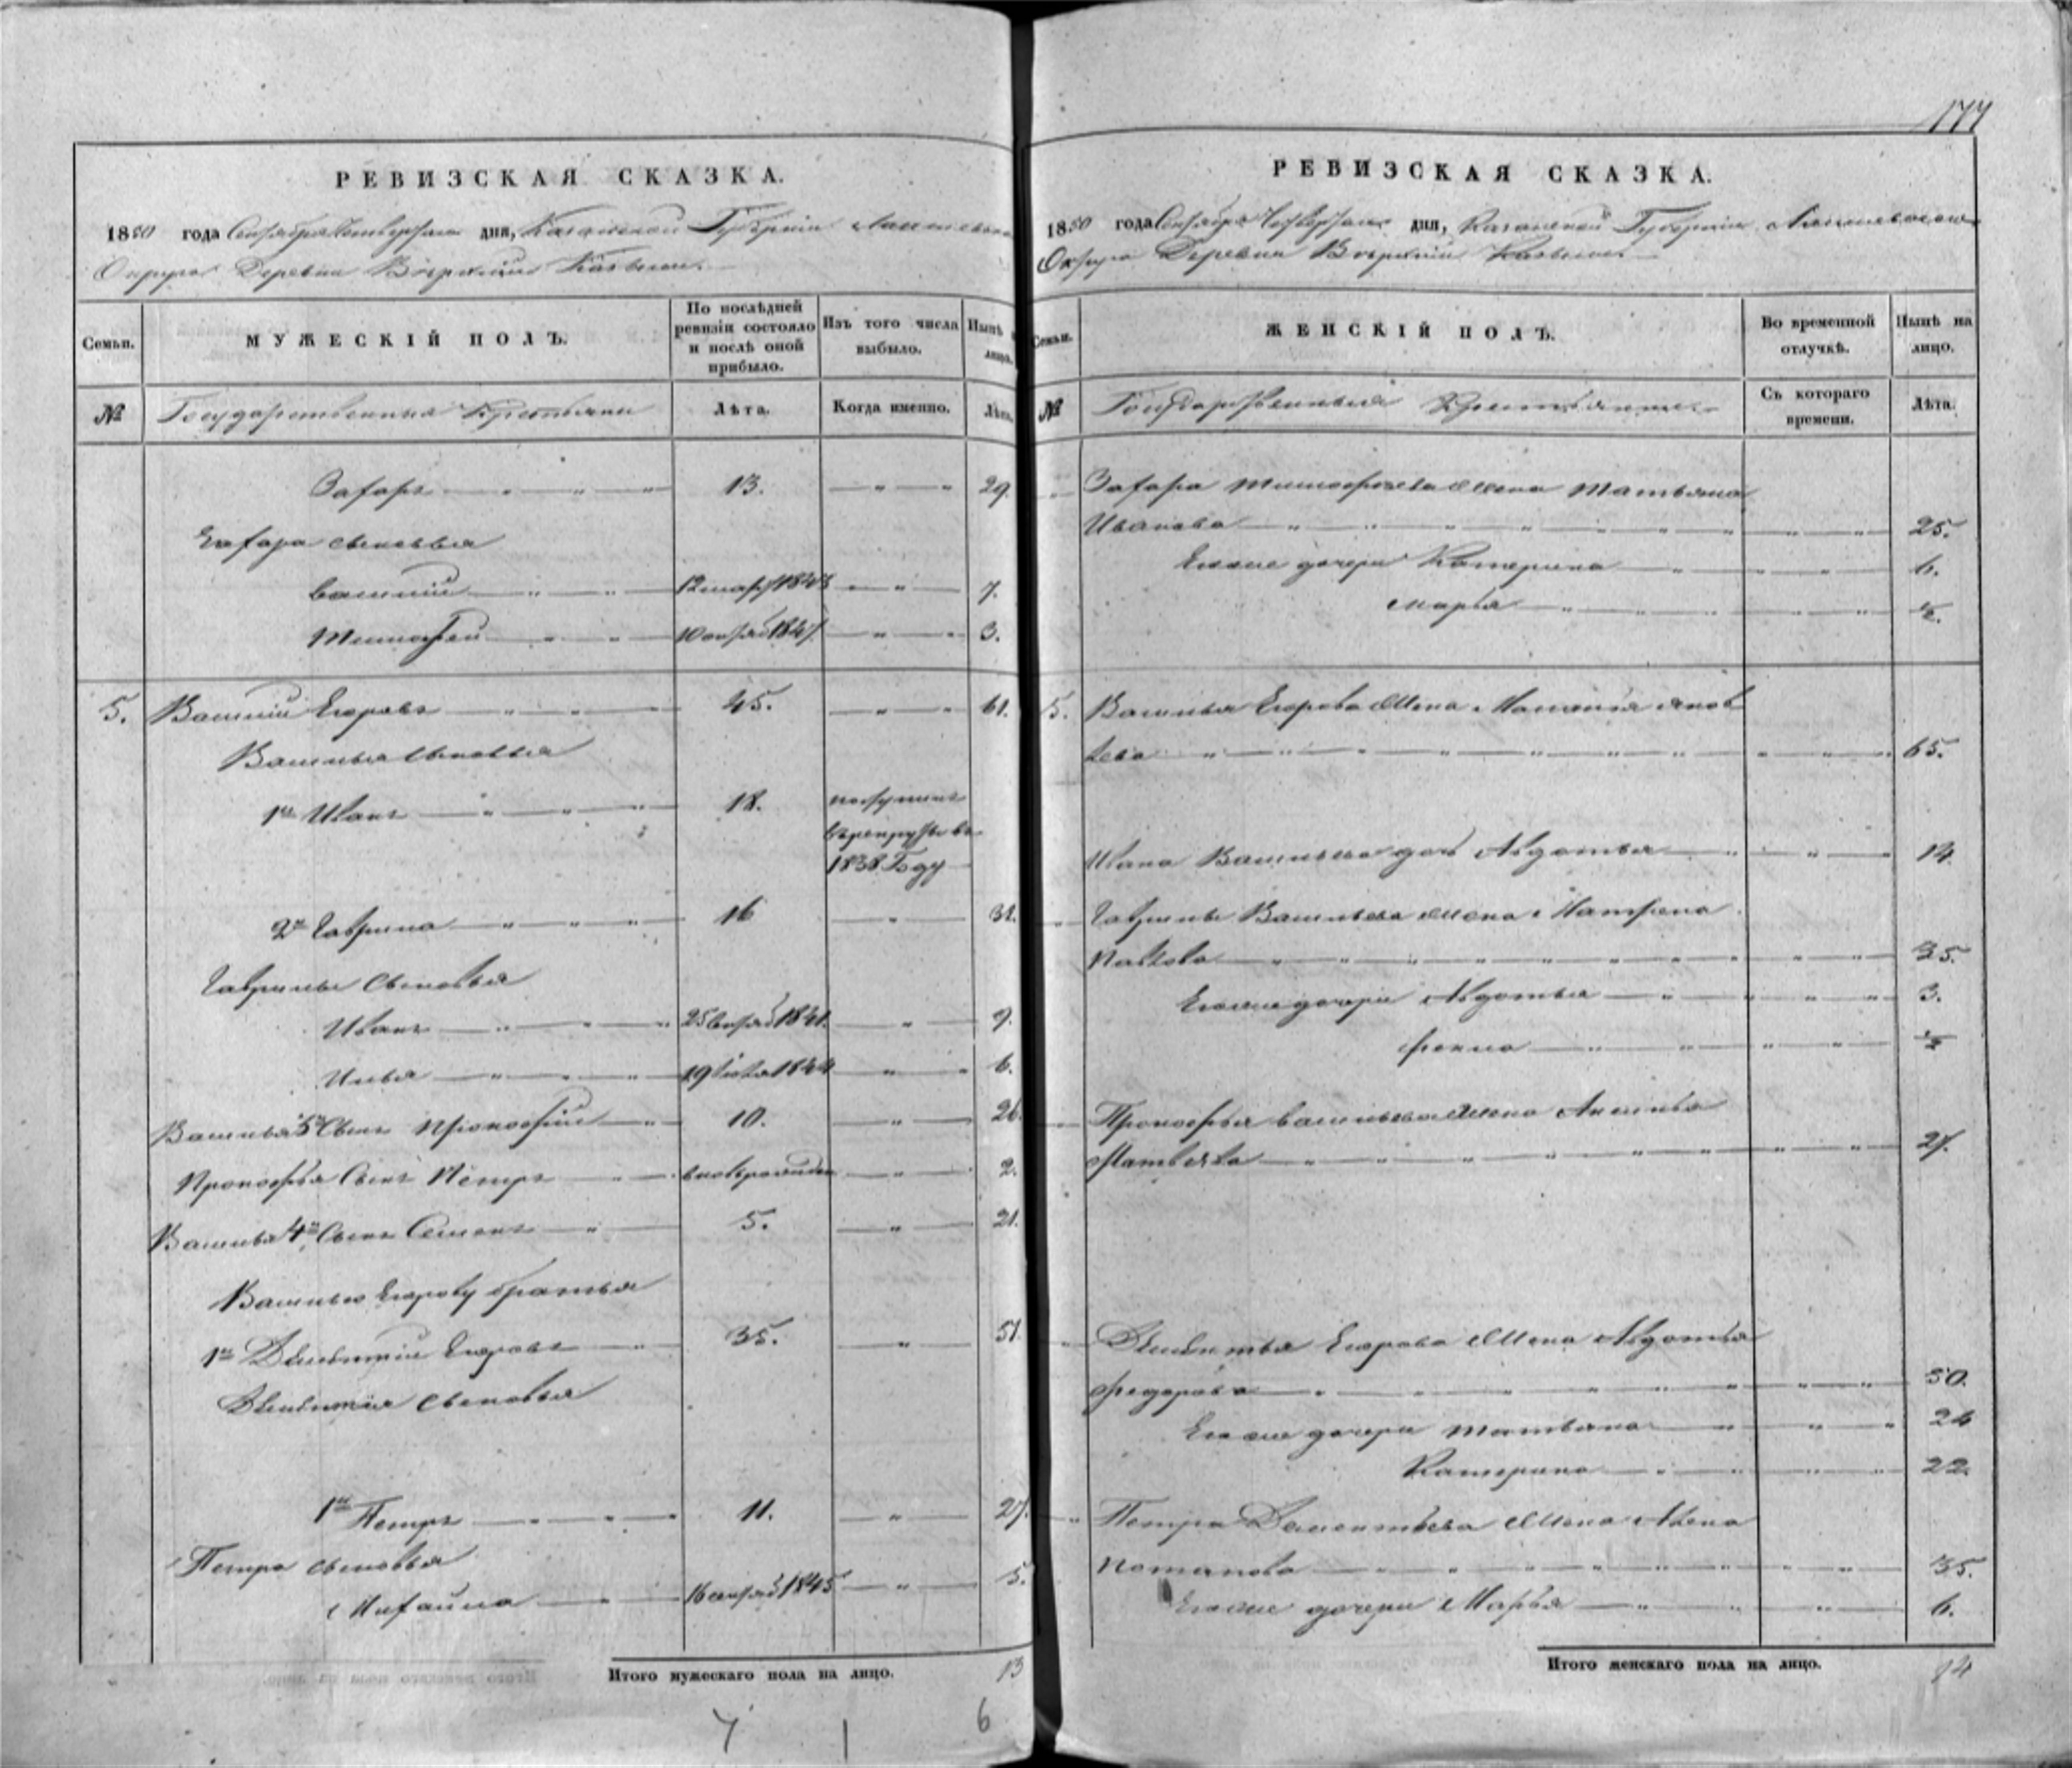 РЕВИЗСКАЯ СКАЗКА.
1850 года Сентября дня, Казанской Губернiи
Округа Деревни
Семьи. МУЖЕСКIЙ ПОЛЪ. По послѣдней ревизiи состояло и послѣ оной прибыло. Изъ того числа выбыло. Нынѣ на лицо.
№ Государственныя Крестьяни Лѣта. Когда именно. Лѣта.
Захаръ 13. 29.
Захара сыновья
Василiй 12 7.
Тимофей 1847. 3.
5. Василiй Егоровъ 45. 61.
Василья сыновья
1й Иванъ 18. поступилъ
въ рекруты въ
1838 Году
2й Гаврила 16
Гаврилы сыновья
Иванъ 1841. 9.
Илья 19 1844 6.
Василья 3й Сынъ Прокофiй 10. 26.
Прокофья Сынъ Петръ 2.
Василья 4й Сынъ Семенъ 5. 21.
Василью Егорову братья
1й Дементiй Егоровъ 35. 51.
Дементiя сыновья
1й Петръ 11. 27.
Петра сыновья
Михайла 1845 5.
Итого мужескаго пола на лицо. 13
7 1 6
177
РЕВИЗСКАЯ СКАЗКА.
1850 года Сентября дня, Казанской Губернiи
Округа Деревни
Семьи. ЖЕНСКIЙ ПОЛЪ. Во временной отлучкѣ. Нынѣ на лицо.
№ Государственныя Съ котораго времени. Лѣта.
Захара Тимофеева жена Татьяна
Иванова 25.
Ево же дочери Катерина 6.
Марья
5. Василья Егорова жена Маланья Яков
лева 65.
Ивана Васильева дочь Авдотья 14.
Гаврилы Васильева жена Матрена
Павлова 35.
Ево же дочери Авдотья 3.
Фекла ½
Прокофья Васильева жена Аксинья
Матвѣева 27.
Дементья Егорова жена Авдотья
Федорова 50.
Ево же дочери Татьяна 24
Катерина 22.
Петра Дементьева жена
Потапова 35.
Ево же дочери Марья 6.
Итого женскаго пола на лицо. 14